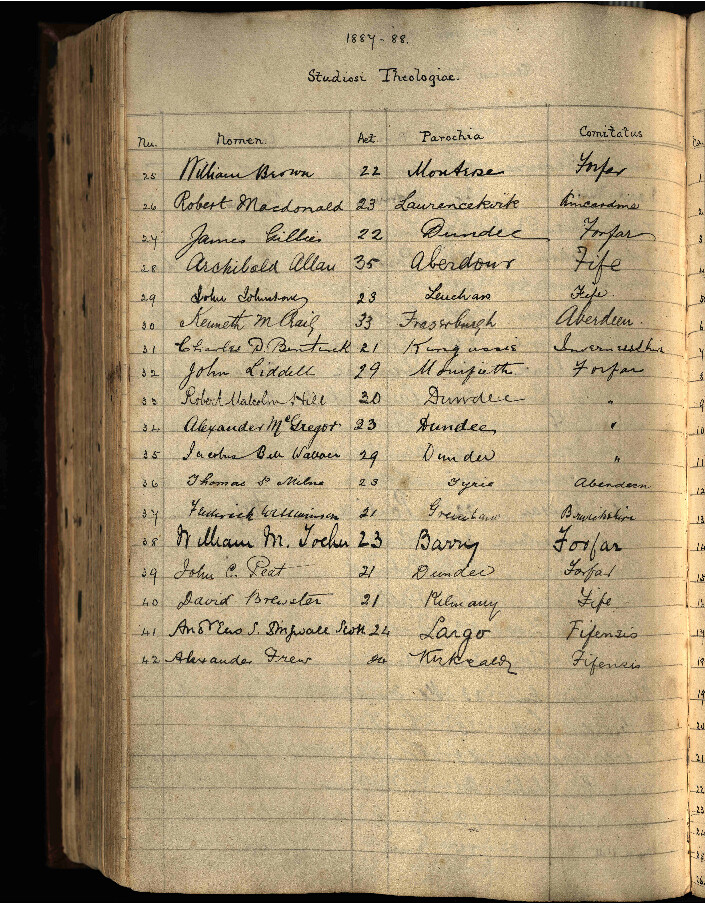 1887-88.
Studiosi Theologiae.
Nu. Nomen. Aet. Parochia Comitatus
25 William Brown 22 Montrose Forfar
26 Robert Macdonald 23 Laurencekirk Kincardine
27 James Gillies 22 Dundee Forfar
28 Archibald Allan 35 Aberdour Fife
29 John Johnstone 23 Leuchars Fife
30 Kenneth McCraig 33 Fraserburgh Aberdeen.
31 Charles D. Bentinck 21 Kingussie Invernessshire
32 John Liddell 29 Monifieth Forfar
33 Robert Malcolm Hill 20 Dundee "
34 Alexander McGregor 23 Dundee "
35 Jacobus Bell 29 Dundee "
36 Thomas S. Milne 23 Tyrie Aberdeen
37 Frederick Williamson 21 Greenlaw Berwickshire
38 William M. Tocher 23 Barry Forfar
39 John C. Peat 21 Dundee Forfar
40 David Brewster 21 Kilmany Fife
41 Andreas S. Dingwall Scott 24 Largo Fifensis
42 Alexander Frew Kirkcaldy Fifensis